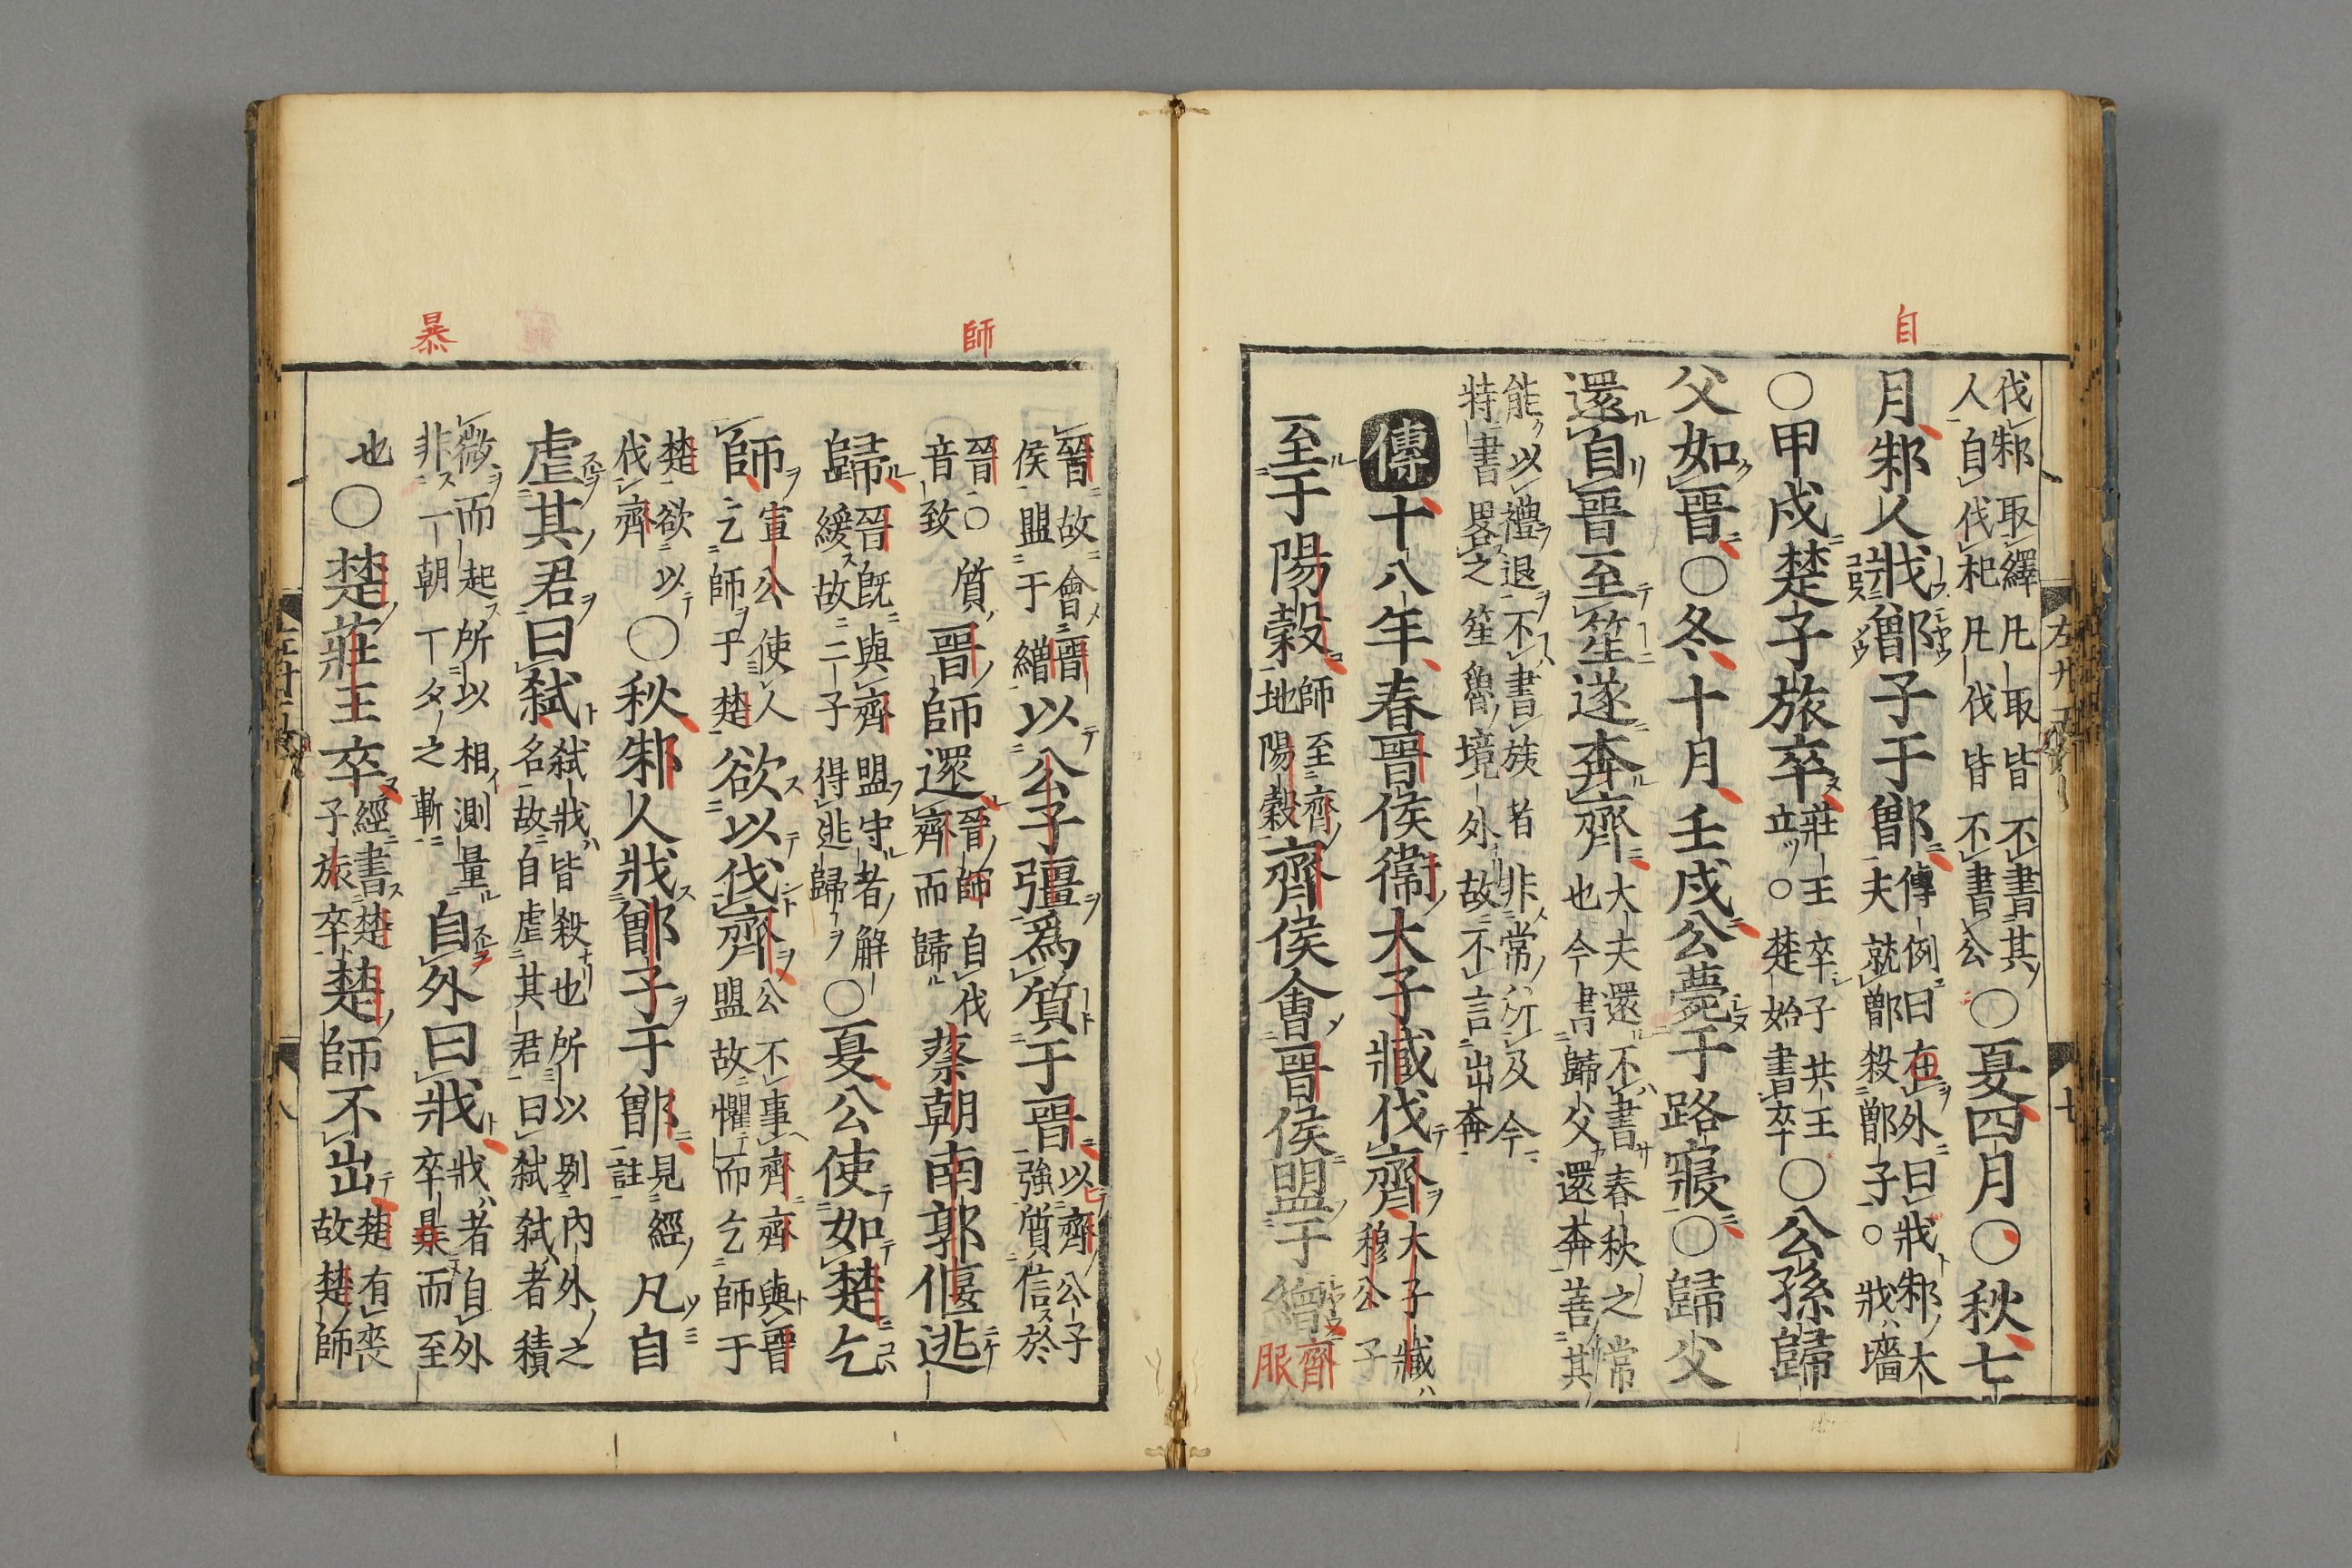 伐邾取繹凡取皆不書其
人自伐杞凡伐皆不書公
○夏四月○秋七
月邾人戕鄫子于鄫
傳例曰在外曰戕邾大
夫就鄫殺鄫子○戕墻
○甲戌楚子旅卒
莊王卒子共王
立○楚始書卒
○公孫歸
父如晉○冬十月壬戌公薨于路寢○歸父
還自晉至笙遂奔齊
大夫還不書春秋之常
也今書歸父還奔善其
能以禮退不書族者非常所及今
特書畧之笙魯境外故不言出奔
傳十八年春晉侯衞大子臧伐齊
大子臧
穆公子
至于陽穀
師至齊
地陽穀
齊侯會晉侯盟于繒
齊
服
晉故會晉
侯盟于繒
以公子彊爲質于晉
以齊公子
強質信於
晉○
音致
質
晉師還
晉師自伐
齊而歸
蔡朝南郭偃逃
歸
晉既與齊盟守者解
緩故二子得逃歸
○夏公使如楚乞
師
宣公使人
乞師于楚
欲以伐齊
公不事齊齊與晉
盟故懼而乞師于
楚欲以
伐齊
○秋邾人戕鄫子于鄫
見經
註
凡自
虐其君曰弑
弑戕皆殺也所以別內外之
名故自虐其君曰弑弑者積
微而起所以相測量
非一朝一夕之漸
自外曰戕
戕者自外
卒暴而至
也
○楚莊王卒
經書楚
子旅卒
楚師不出
楚有喪
故楚師
自
師
暴
左廿一
七
八